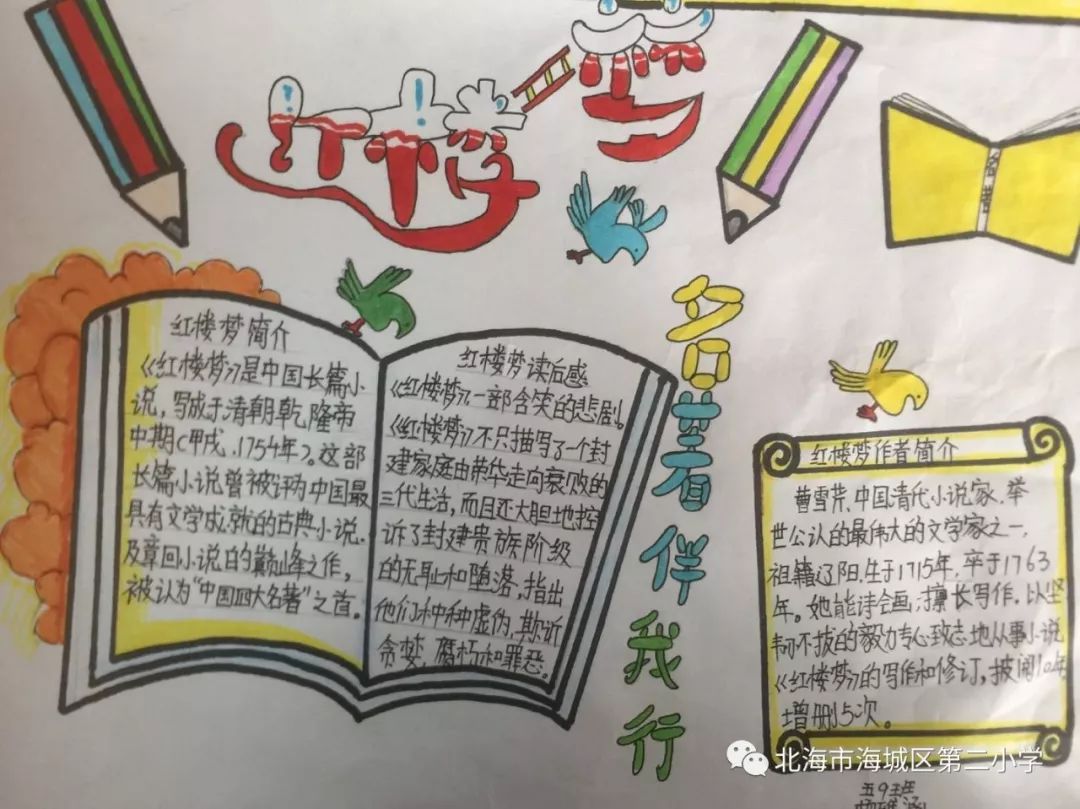 红楼梦
名著
名著伴我行
红楼梦简介
《红楼梦》是中国长篇小
说，写成于清朝乾隆帝
中期(甲戌、1754年)。这部
长篇小说曾被评为中国最
具有文学成就的古典小说.
及章回小说的巅峰之作，
被认为“中国四大名著”之首。
红楼梦读后感
《红楼梦》，一部含笑的悲剧。
《红楼梦》不只描写了一个封
建家庭由荣华走向衰败的
三代生活，而且还大胆地控
诉了封建贵族阶级
的无耻和堕落，指出
他们种种虚伪，欺诈
贪婪，腐朽和罪恶。
红楼梦作者简介
曹雪芹、中国清代小说家、举
世公认的最伟大的文学家之一，
祖籍辽阳.生于1715年，卒于1763
年。她能诗会画，擅长写作，以坚
韧不拔的毅力专心致志地从事小说
《红楼梦》的写作和修订，披阅10年
增删5次。
五9班
北海市海城区第二小学